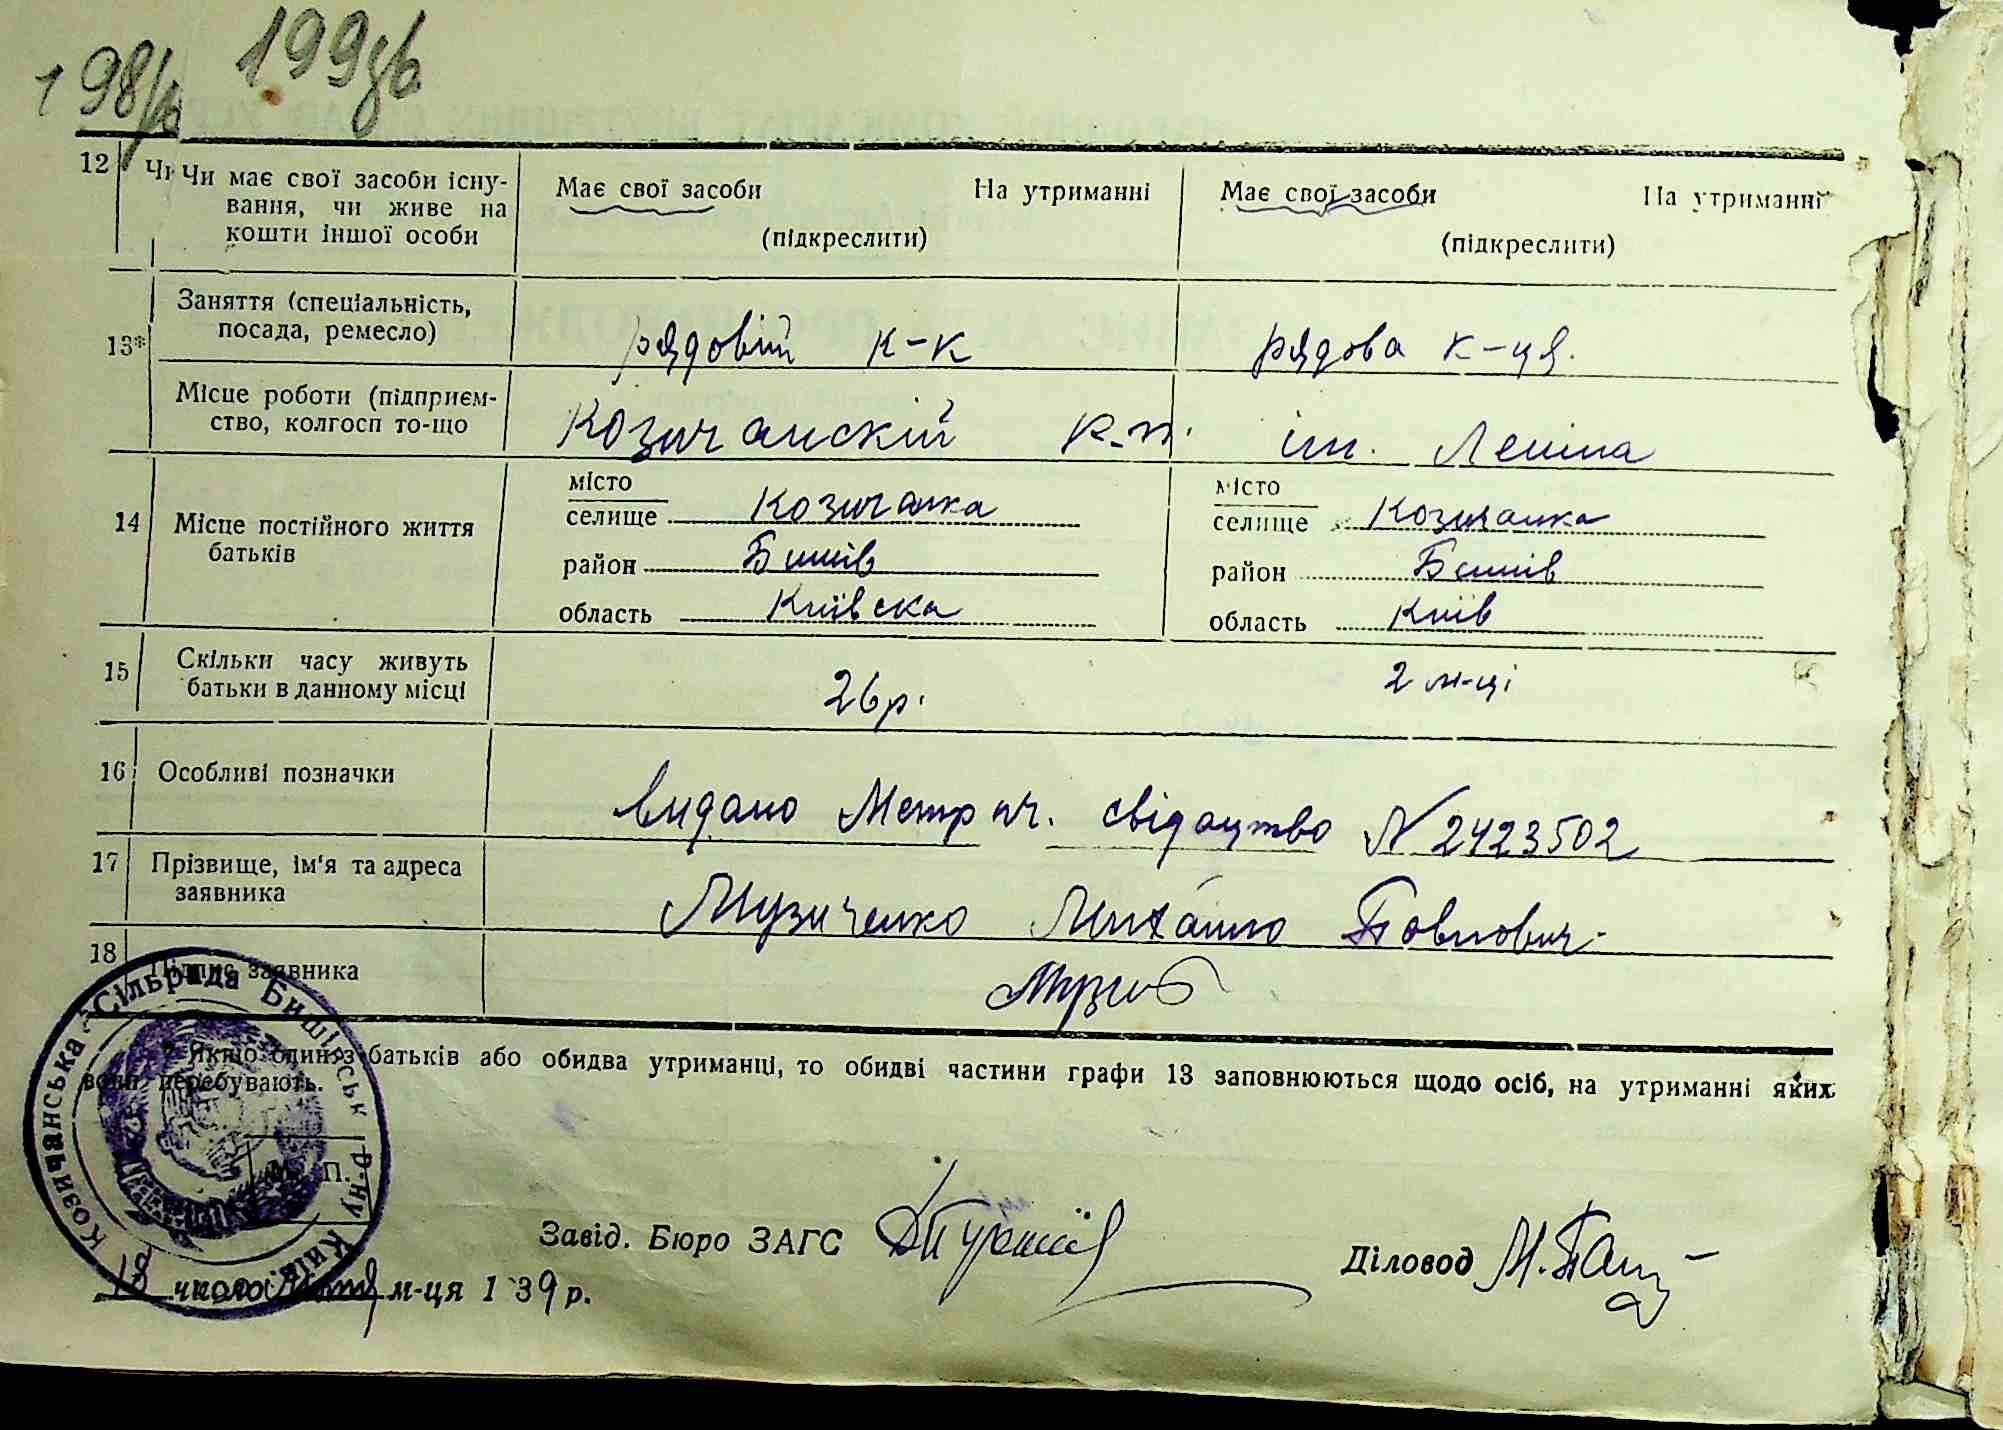 198зв 199зв.
12 Чи Чи має свої засоби існу-
вання, чи живе на
кошти іншої особи
Має свої засоби На утриманні
(підкреслити)
Має свої засоби На утриманні
(підкреслити)
13*
Заняття (спеціальність,
посада, ремесло)
рядовій к-к
рядова к-ця.
Місце роботи (підприєм-
ство, колгосп то-що
Козичанскій к-п. ім. Леніна
14 Місце постійного життя
батьків
місто
селище Козичанка
район Бишів
область Київска
місто
селище Козичанка
район Бишів
область Київ
15 Скільки часу живуть
батьки в данному місці
26 р.
2 м-ці
16 Особливі позначки
видано Метрич. свідоцтво N 2423502
17 Прізвище, ім'я та адреса
заявника
Музиченко Михайло Павлович
18 Підпис заявника
* Якщо один з батьків або обидва утриманці, то обидві частини графи 13 заповнюються щодо осіб, на утриманні яких
вони перебувають.
Козичанська Сільрада Бишівськ р-ну Київ.
М. П.
Завід. Бюро ЗАГС
Діловод
18 числа м-ця 1 39 р.